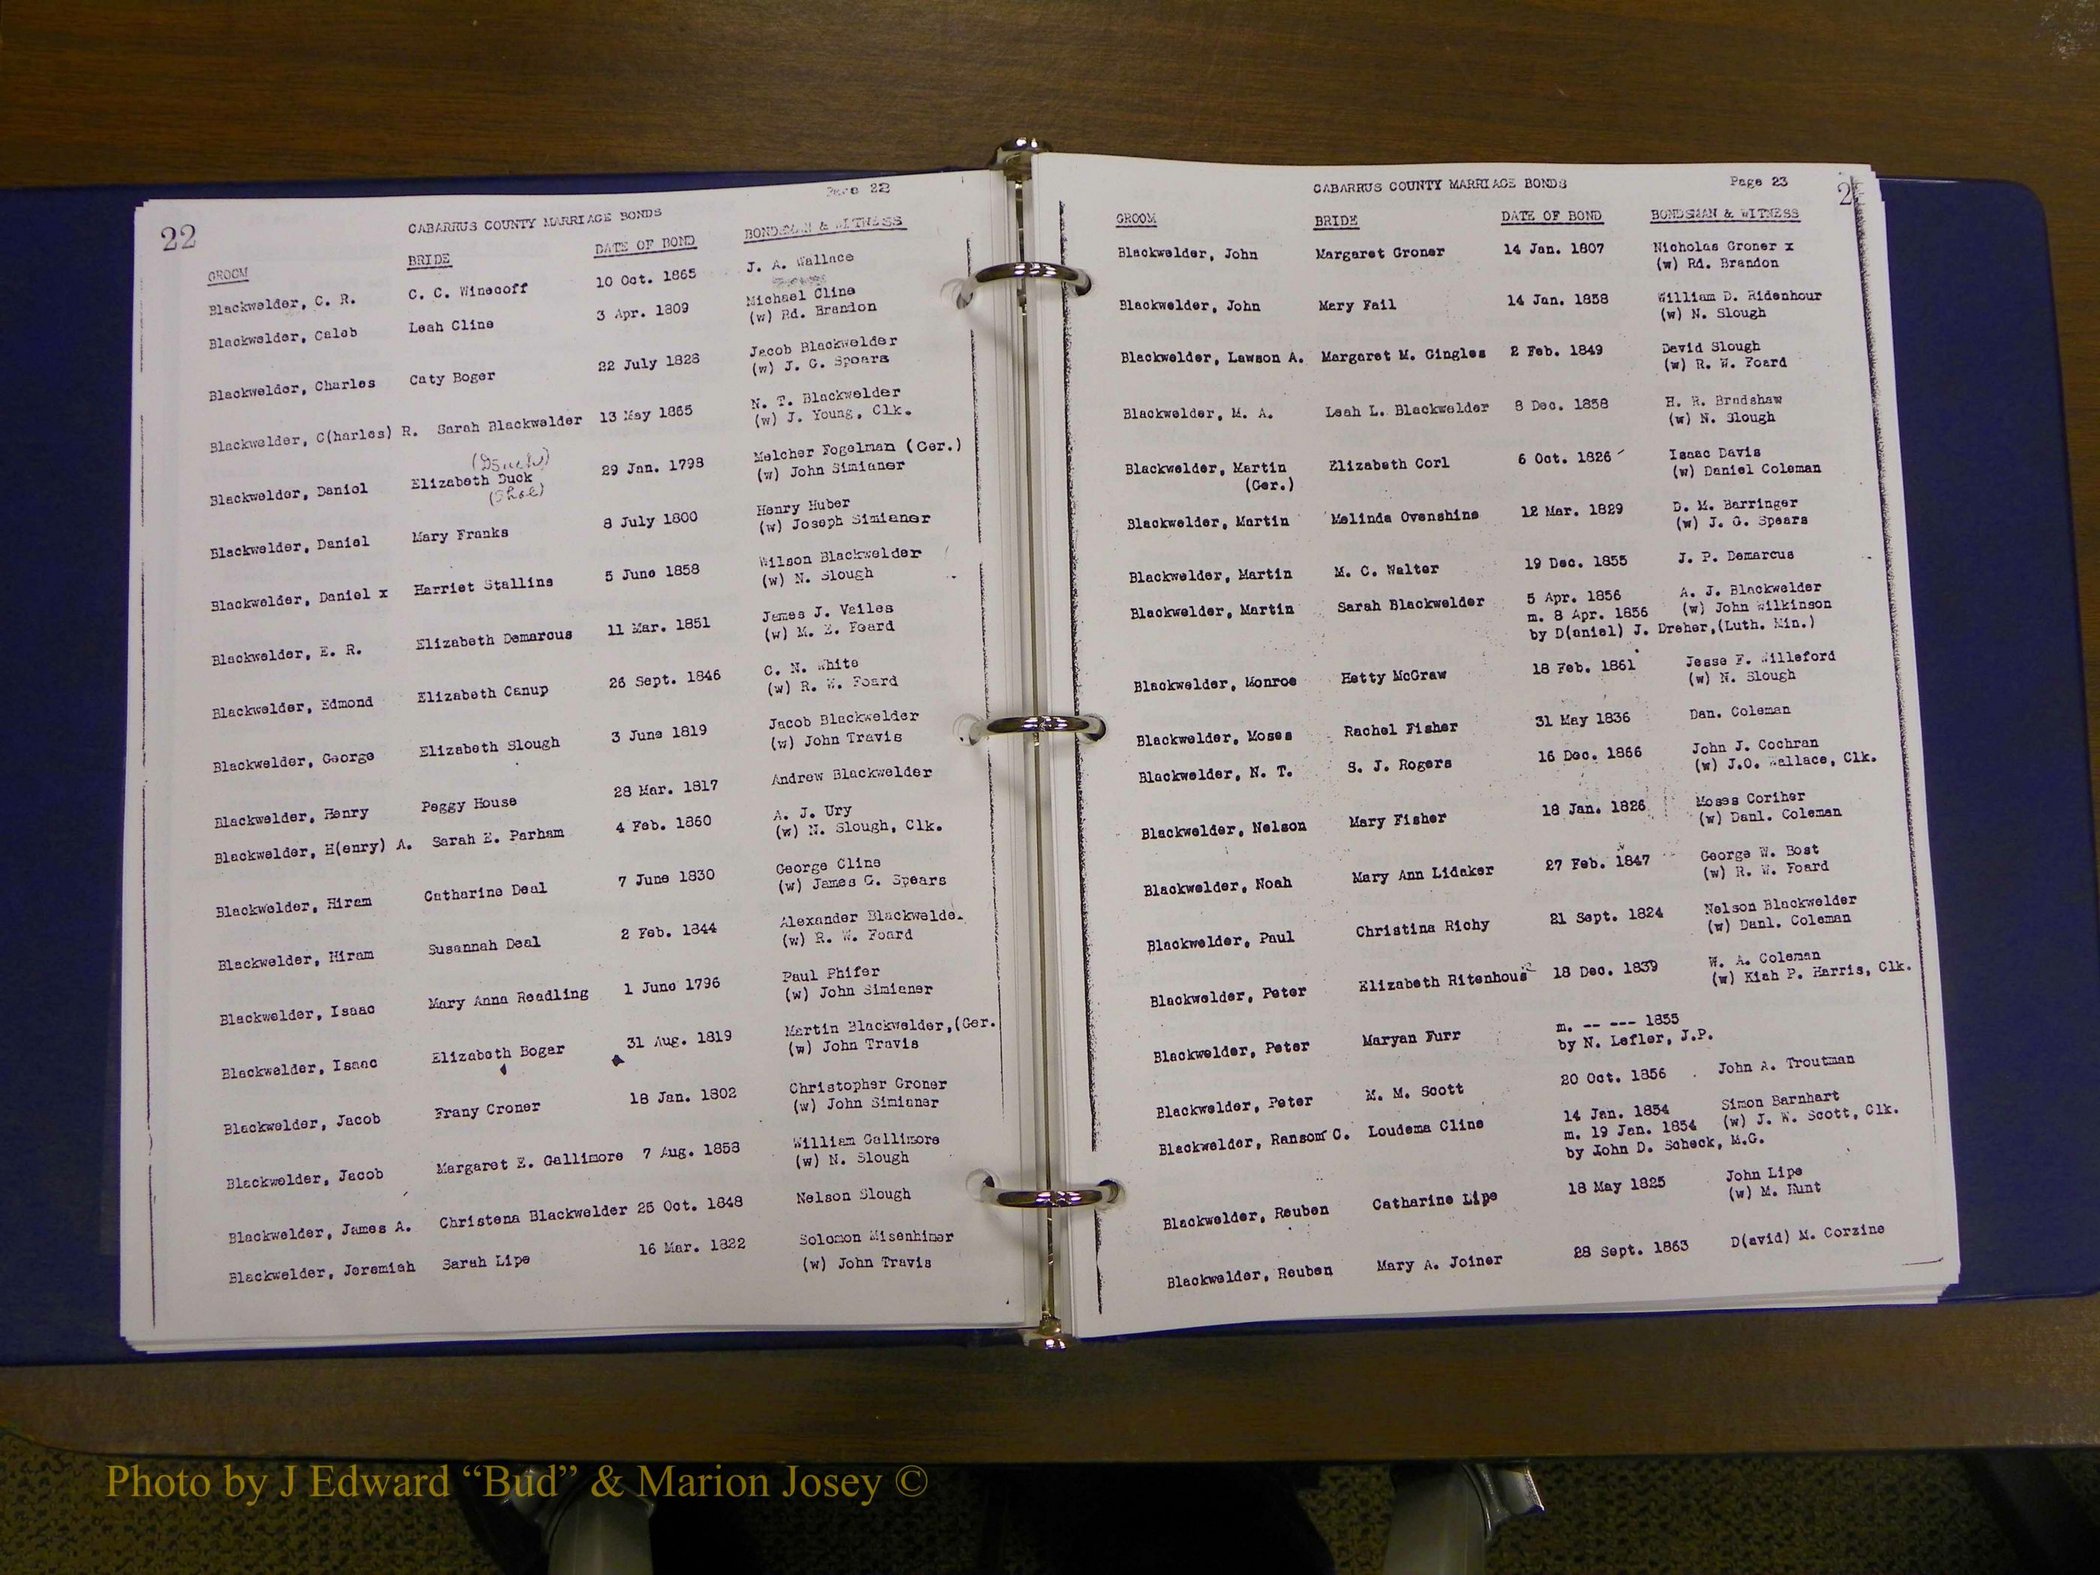 Page 22
22
CABARRUS COUNTY MARRIAGE BONDS
GROOM BRIDE DATE OF BOND BONDSMAN & WITNESS
Blackwelder, C. R. C. C. Winecoff 10 Oct. 1865 J. A. Wallace
Blackwelder, Caleb Leah Cline 3 Apr. 1809 Michael Cline
(w) Rd. Brandon
Blackwelder, Charles Caty Boger 22 July 1828 Jacob Blackwelder
(w) J. G. Spears
Blackwelder, C(harles) R. Sarah Blackwelder 13 May 1865 N. T. Blackwelder
(w) J. Young, Clk.
Blackwelder, Daniel Elizabeth Duck 29 Jan. 1798 Melcher Fogelman (Ger.)
(w) John Simianer
Blackwelder, Daniel Mary Franks 8 July 1800 Henry Huber
(w) Joseph Simianer
Blackwelder, Daniel x Harriet Stallins 5 June 1858 Wilson Blackwelder
(w) N. Slough
Blackwelder, E. R. Elizabeth Demarcus 11 Mar. 1851 James J. Vailes
(w) M. E. Foard
Blackwelder, Edmond Elizabeth Canup 26 Sept. 1846 C. N. White
(w) R. W. Foard
Blackwelder, George Elizabeth Slough 3 June 1819 Jacob Blackwelder
(w) John Travis
Blackwelder, Henry Peggy House 28 Mar. 1817 Andrew Blackwelder
Blackwelder, H(enry) A. Sarah E. Parham 4 Feb. 1860 A. J. Ury
(w) N. Slough, Clk.
Blackwelder, Hiram Catharine Deal 7 June 1830 George Cline
(w) James G. Spears
Blackwelder, Hiram Susannah Deal 2 Feb. 1844 Alexander Blackwelde
(w) R. W. Foard
Blackwelder, Isaac Mary Anna Readling 1 June 1796 Paul Phifer
(w) John Simianer
Blackwelder, Isaac Elizabeth Boger 31 Aug. 1819 Martin Blackwelder,(Ger.
(w) John Travis
Blackwelder, Jacob Frany Croner 18 Jan. 1802 Christopher Croner
(w) John Simianer
Blackwelder, Jacob Margaret E. Gallimore 7 Aug. 1858 William Gallimore
(w) N. Slough
Blackwelder, James A. Christena Blackwelder 25 Oct. 1848 Nelson Slough
Blackwelder, Jeremiah Sarah Lipe 16 Mar. 1822 Solomon Misenhimer
(w) John Travis
CABARRUS COUNTY MARRIAGE BONDS Page 23
GROOM BRIDE DATE OF BOND BONDSMAN & WITNESS
Blackwelder, John Margaret Groner 14 Jan. 1807 Nicholas Groner x
(w) Rd. Brandon
Blackwelder, John Mary Fail 14 Jan. 1858 William D. Ridenhour
(w) N. Slough
Blackwelder, Lawson A. Margaret M. Gingles 2 Feb. 1849 David Slough
(w) R. W. Foard
Blackwelder, M. A. Leah L. Blackwelder 8 Dec. 1858 H. R. Bradshaw
(w) N. Slough
Blackwelder, Martin Elizabeth Corl 6 Oct. 1826 Isaac Davis
(Ger.) (w) Daniel Coleman
Blackwelder, Martin Melinda Ovenshine 12 Mar. 1829 D. M. Barringer
(w) J. G. Spears
Blackwelder, Martin M. C. Walter 19 Dec. 1855 J. P. Demarcus
Blackwelder, Martin Sarah Blackwelder 5 Apr. 1856 A. J. Blackwelder
m. 8 Apr. 1856 (w) John Wilkinson
by D(aniel) J. Dreher,(Luth. Min.)
Blackwelder, Monroe Hetty McGraw 18 Feb. 1861 Jesse F. Willeford
(w) N. Slough
Blackwelder, Moses Rachel Fisher 31 May 1836 Dan. Coleman
Blackwelder, N. T. S. J. Rogers 16 Dec. 1866 John J. Cochran
(w) J.O. Wallace, Clk.
Blackwelder, Nelson Mary Fisher 18 Jan. 1826 Moses Coriher
(w) Danl. Coleman
Blackwelder, Noah Mary Ann Lidaker 27 Feb. 1847 George W. Bost
(w) R. W. Foard
Blackwelder, Paul Christina Richy 21 Sept. 1824 Nelson Blackwelder
(w) Danl. Coleman
Blackwelder, Peter Elizabeth Ritenhouse 18 Dec. 1839 W. A. Coleman
(w) Kiah P. Harris, Clk.
Blackwelder, Peter Maryan Furr m. -- --- 1855
by N. Lefler, J.P.
Blackwelder, Peter M. M. Scott 20 Oct. 1856 John A. Troutman
Blackwelder, Ransom C. Loudema Cline 14 Jan. 1854 Simon Barnhart
m. 19 Jan. 1854 (w) J. W. Scott, Clk.
by John D. Scheck, M.G.
Blackwelder, Reuben Catharine Lipe 18 May 1825 John Lipe
(w) M. Hunt
Blackwelder, Reuben Mary A. Joiner 28 Sept. 1863 D(avid) M. Corzine
Photo by J Edward “Bud” & Marion Josey ©